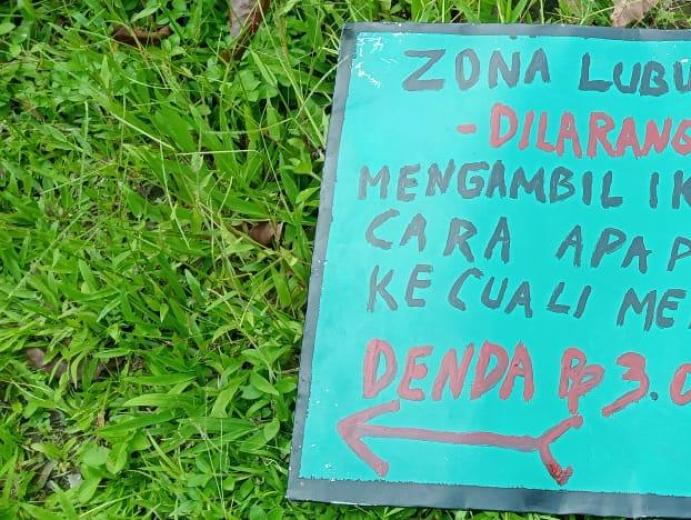 ZONA LUBU
-DILARANG
MENGAMBIL IK
CARA APAP
KECUALI ME
DENDA Rp 3.0